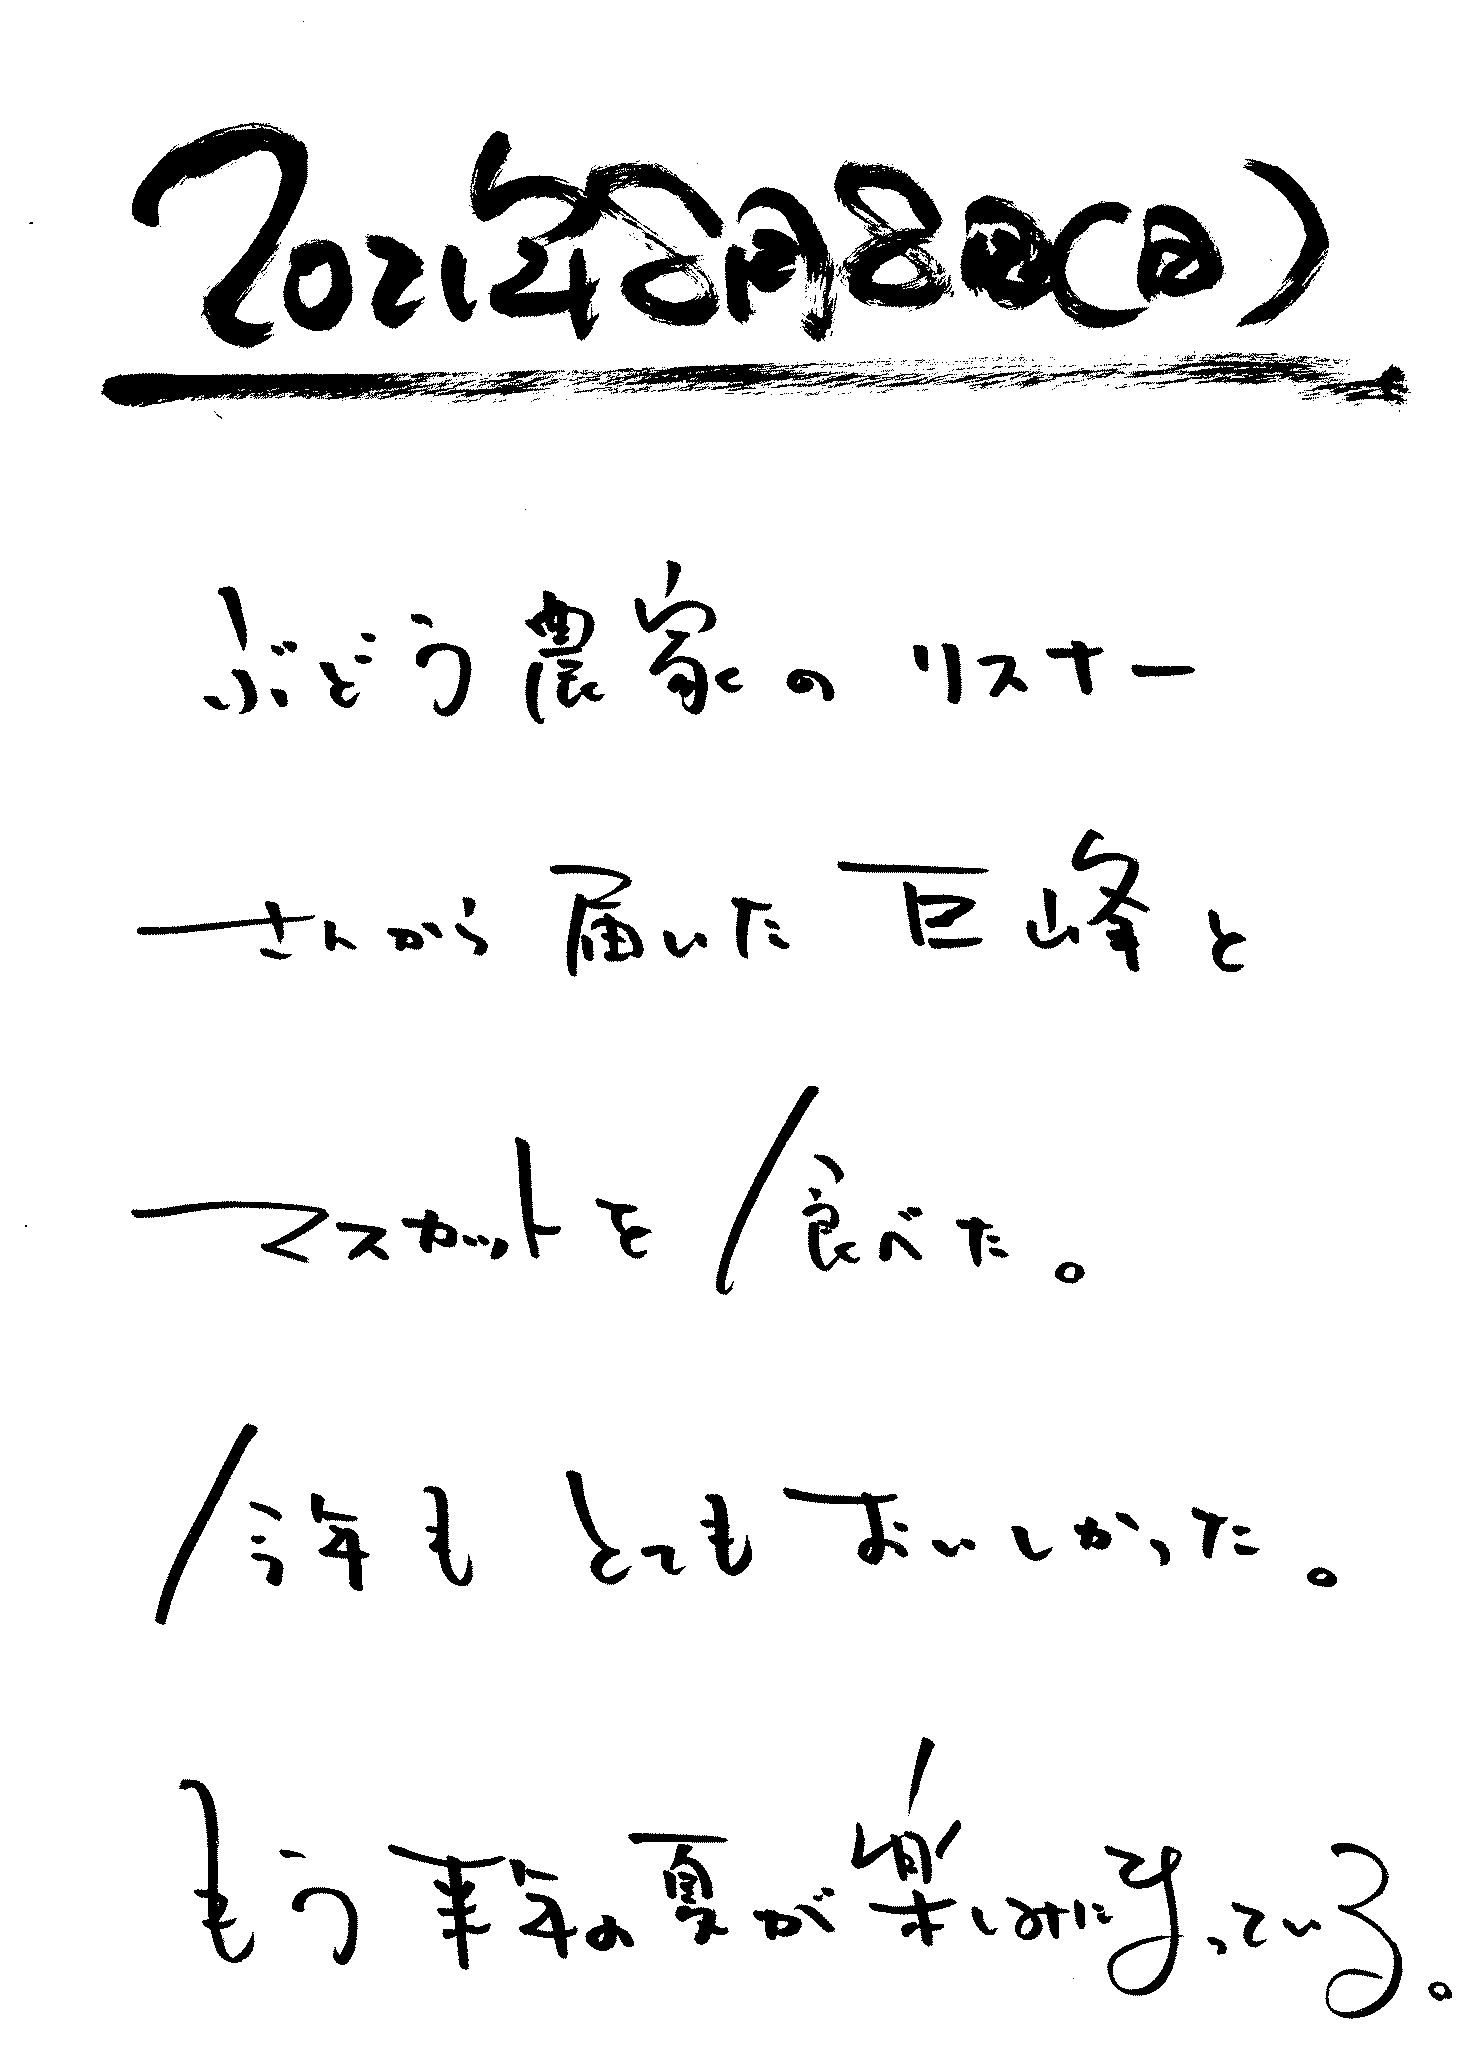 2021年8月8日(日)
ぶどう農家のリスナー
さんから届いた巨峰と
マスカットを食べた。
今年もとてもおいしかった。
もう来年の夏が楽しみになっている。